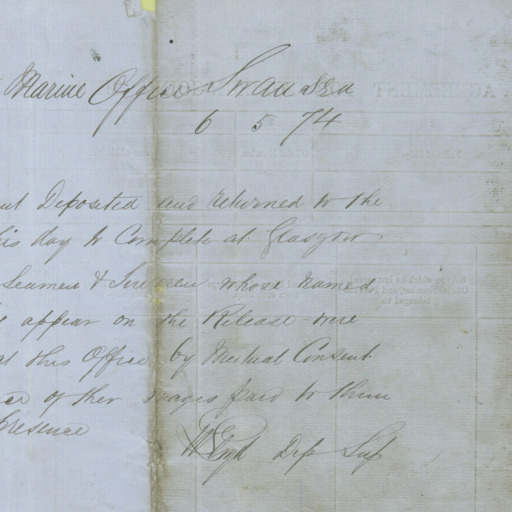 Marine Office Swansea
6 5 74
Deposited and returned to the
his day to Complete at Glasgow
Seamen & Firemen whose named
appear on the Release were
at this Office by Mutual Consent
of their wages paid to them
presence
Dep Sup